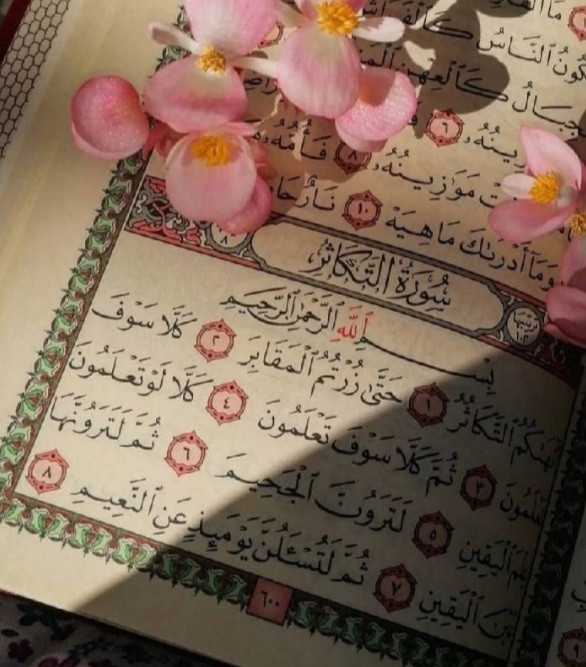 ما القا
كون الناس كالفراش
جبال كالعهن الم
ينه ٦ ف
ت موازينه ٨ فأمه ه
وما أدرىك ما هيه ١٠ نار حا
٨ سورة التكاثر
بسم الله الرحمن الرحيم
ألهىكم التكاثر ١ حتى زرتم المقابر ٢ كلا سوف
تعلمون ٣ ثم كلا سوف تعلمون ٤ كلا لو تعلمون
علم اليقين ٥ لترون الجحيم ٦ ثم لترونها
عين اليقين ٧ ثم لتسـٔلن يومئذ عن النعيم ٨
٦٠٠